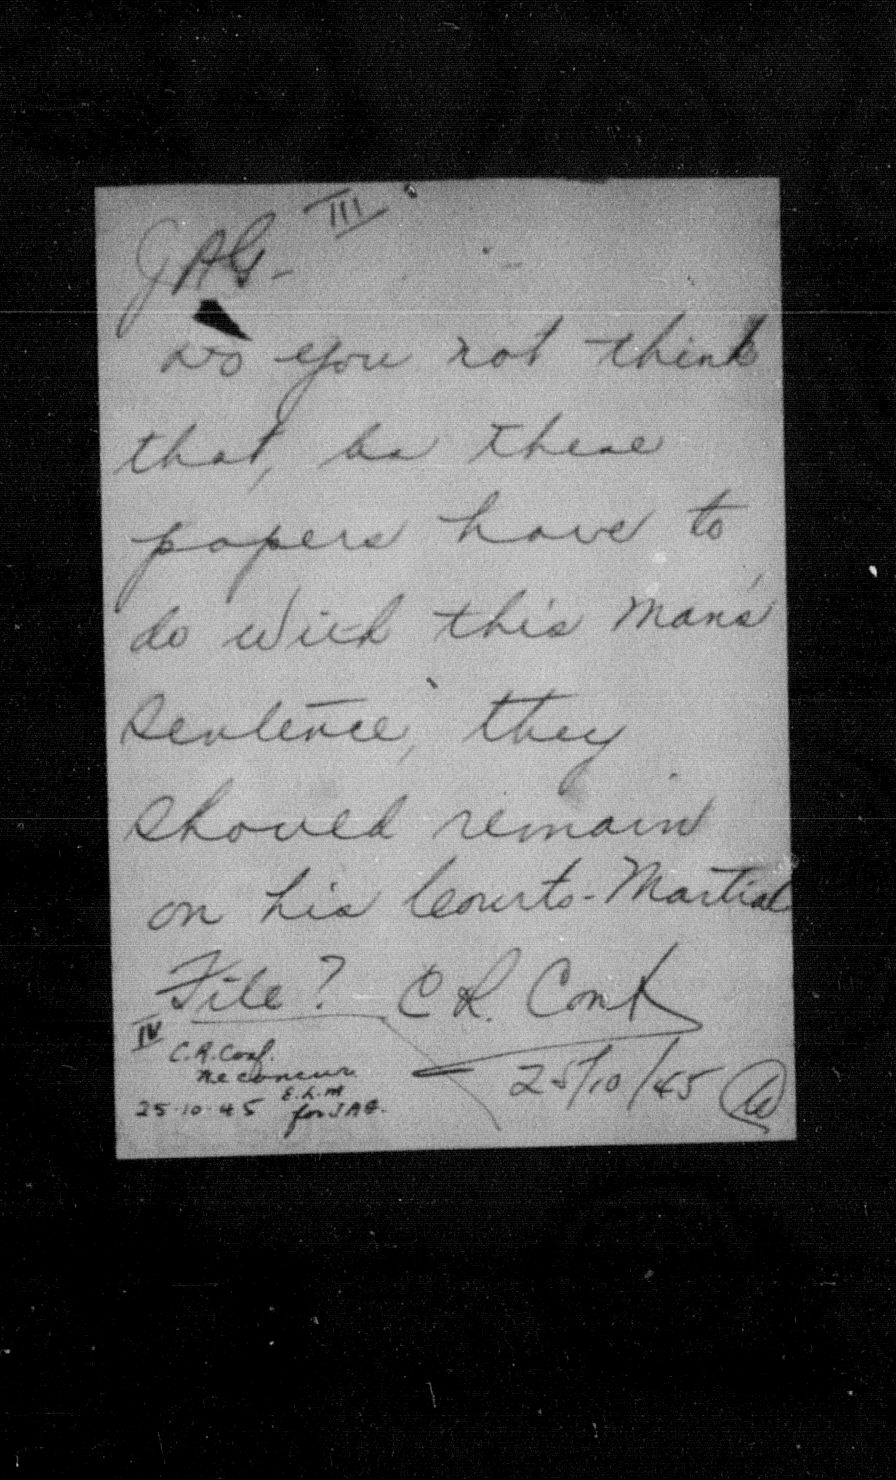 III
JAG-
Do you not think
that, as these
papers have to
do with this man's
sentence, they
should remain
on his Courts-Martial
File? C R. Conf
25/10/45
IV
C.R. Conf.
We concur
E.L.M
25-10-45 for JAG.